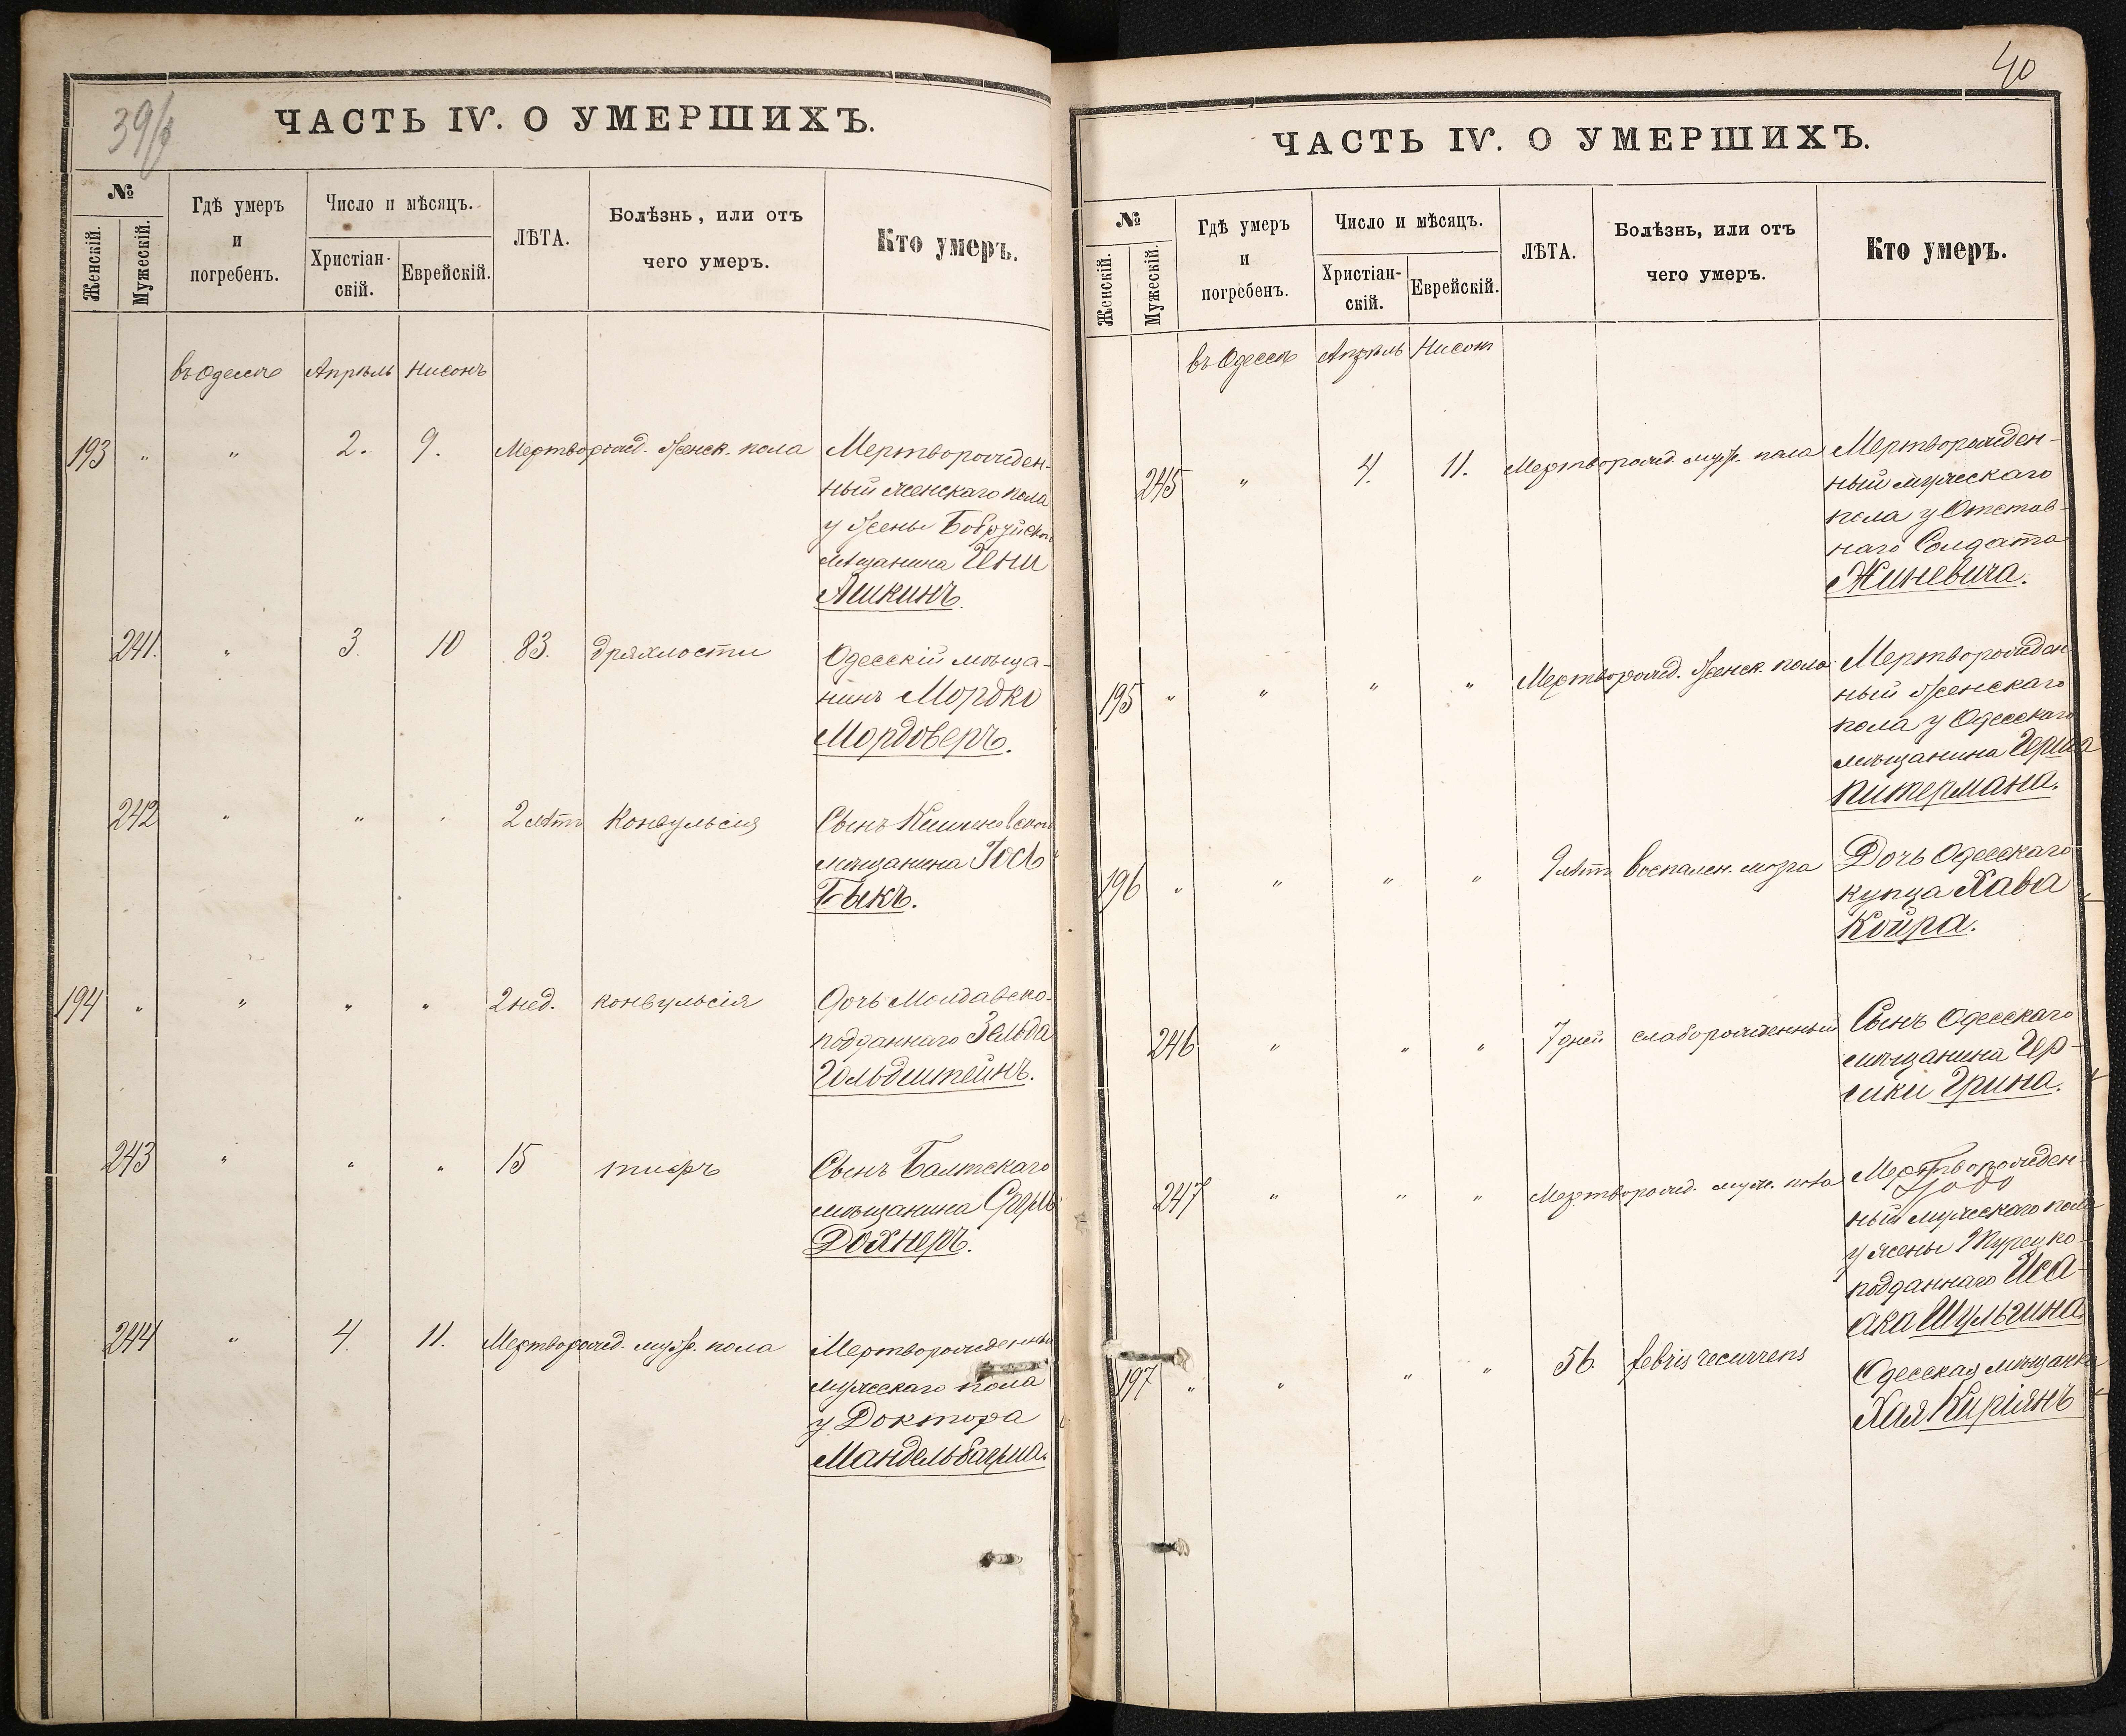 39/
ЧАСТЬ IV. О УМЕРШИХЪ.
№
Женскій.
Мужескій.
Гдѣ умеръ
и
погребенъ.
Число и мѣсяцъ.
Христіан-
скій.
Еврейскій.
ЛѢТА.
Болѣзнь, или отъ
чего умеръ.
Кто умеръ.
въ Одессѣ Апрѣль Нисонъ
193 " " 2. 9. Мертворожд. женск. пола Мертворожден-
ный женскаго пола
у жены Бобруйск.
мѣщанина
Ашкинъ.
241. " 3. 10 83. дряхлости Одесскій мѣща-
нинъ Мордко
Мордоверъ.
242 " " " 2 лѣтъ Конвульсія Сынъ Кишиневского
мѣщанина Іось
Быкъ.
194 " " " " 2 нед. конвульсія Дочь Молдавско-
подданнаго Зельда
Гольдштейнъ.
243 " " " 15 тифъ Сынъ Балтскаго
мѣщанина Сруль
Дохнеръ.
244 " 4. 11. Мертворожд. муж. пола Мертворожденный
мужескаго пола
у Доктора
Мандельбаума.
40
ЧАСТЬ IV. О УМЕРШИХЪ.
№
Женскій.
Мужескій.
Гдѣ умеръ
и
погребенъ.
Число и мѣсяцъ.
Христіан-
скій.
Еврейскій.
ЛѢТА.
Болѣзнь, или отъ
чего умеръ.
Кто умеръ.
въ Одессѣ Апрѣль Нисонъ
245 " 4. 11. Мертворожд. муж. пола Мертворожден-
ный мужескаго
пола у Отстав-
наго Солдата
Жиневича.
195 " " " " Мертворожд. женск. пола Мертворожден
ный женскаго
пола у Одесскаго
мѣщанина Герша
Питермана.
196 " " " " 9 лѣтъ воспален. мозга Дочь Одесскаго
купца Хава
Койра.
246 " " " 7 дней слаборожденный Сынъ Одесскаго
мѣщанина Гер-
шки Грина.
247 " " " Мертворожд. муж. пола Мертворожден-
ный мужескаго пола
у жены Турецко-
подданнаго Иса-
ака Шульгина.
197 " " " " 56 febris recurrens Одесская мѣщанка
Хая Киріянъ